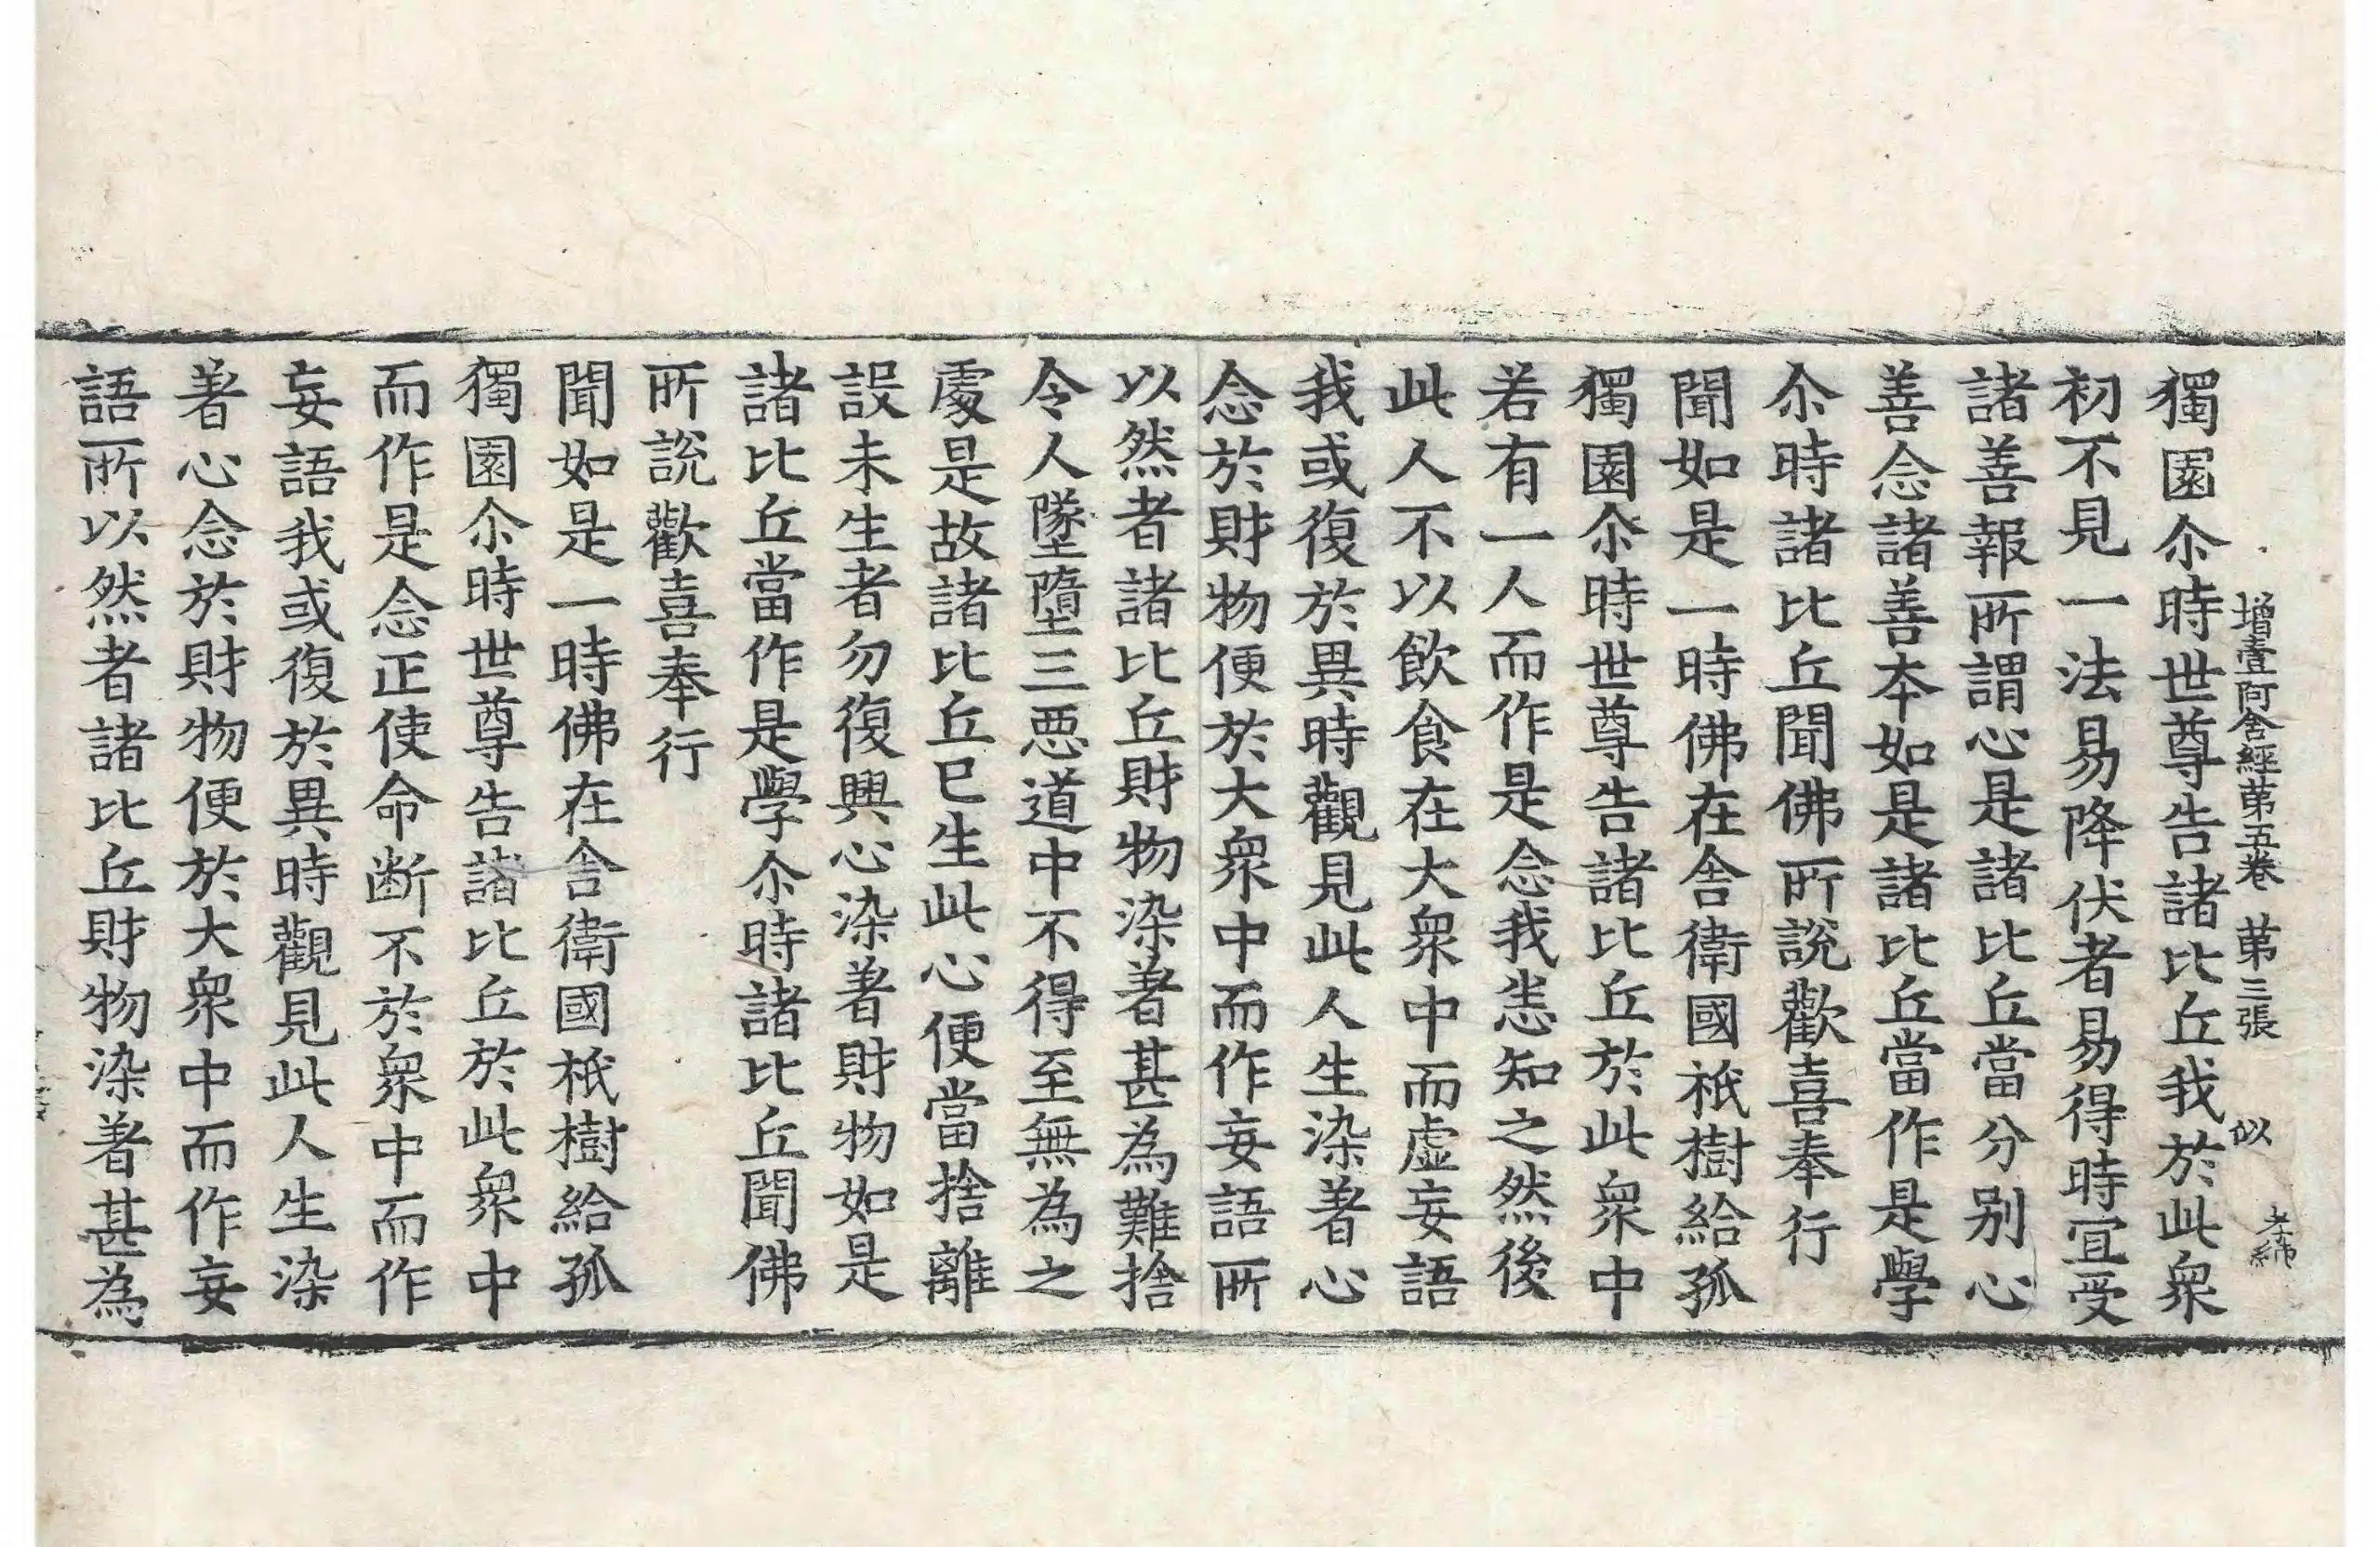 增壹阿含經第五卷 第三張 似
獨園尒時世尊告諸比丘我於此衆
初不見一法易降伏者易得時宜受
諸善報所謂心是諸比丘當分别心
善念諸善本如是諸比丘當作是學
尒時諸比丘聞佛所說歡喜奉行
聞如是一時佛在舍衛國祇樹給孤
獨園尒時世尊告諸比丘於此衆中
若有一人而作是念我悉知之然後
此人不以飲食在大衆中而虛妄語
我或復於異時觀見此人生染著心
念於財物便於大衆中而作妄語所
以然者諸比丘財物染著甚為難捨
令人墜墮三惡道中不得至無為之
處是故諸比丘已生此心便當捨離
設未生者勿復興心染著財物如是
諸比丘當作是學尒時諸比丘聞佛
所說歡喜奉行
聞如是一時佛在舍衛國祇樹給孤
獨園尒時世尊告諸比丘於此衆中
而作是念正使命断不於衆中而作
妄語我或復於異時觀見此人生染
著心念於財物便於大衆中而作妄
語所以然者諸比丘財物染著甚為